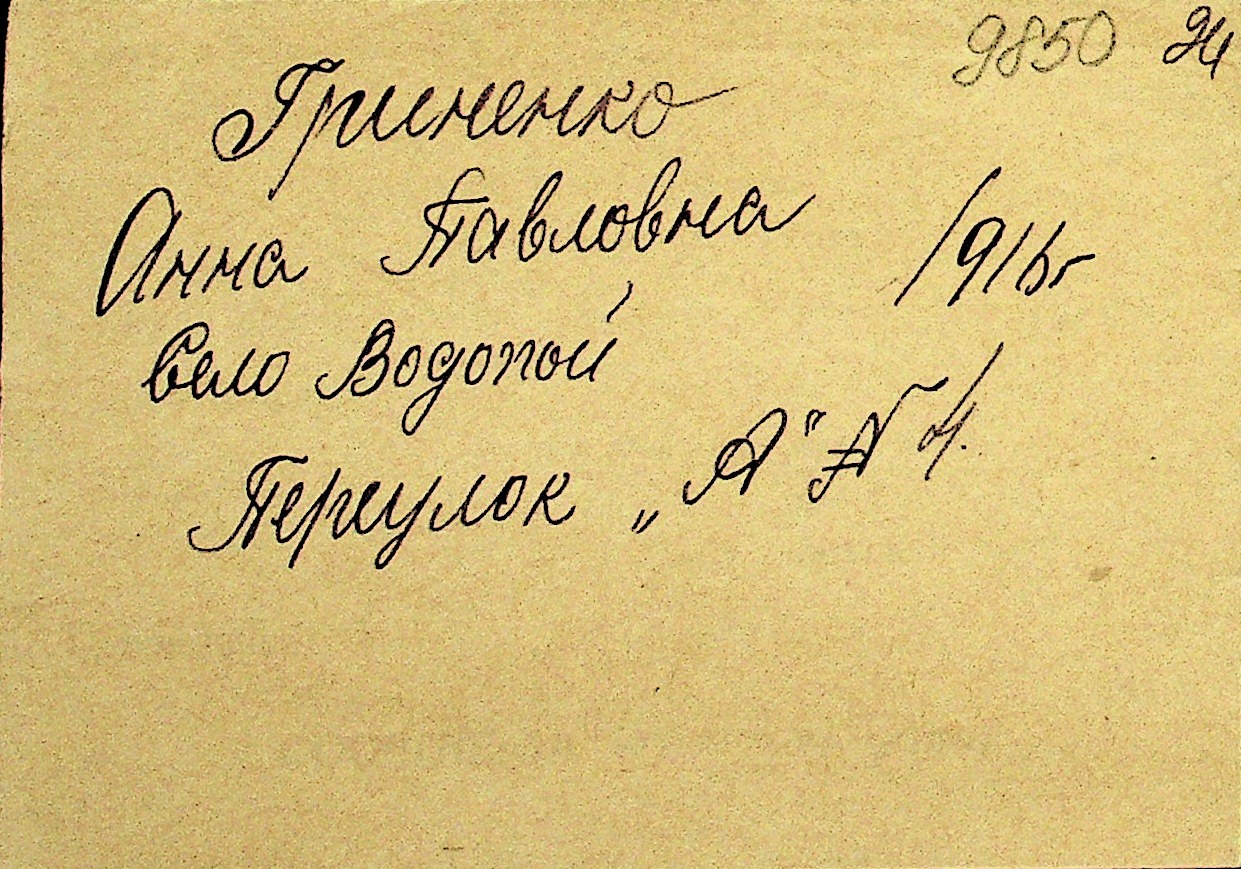 9850 24
Гриненко
Анна Павловна 1916г
Село Водопой
Переулок „А" № 4.